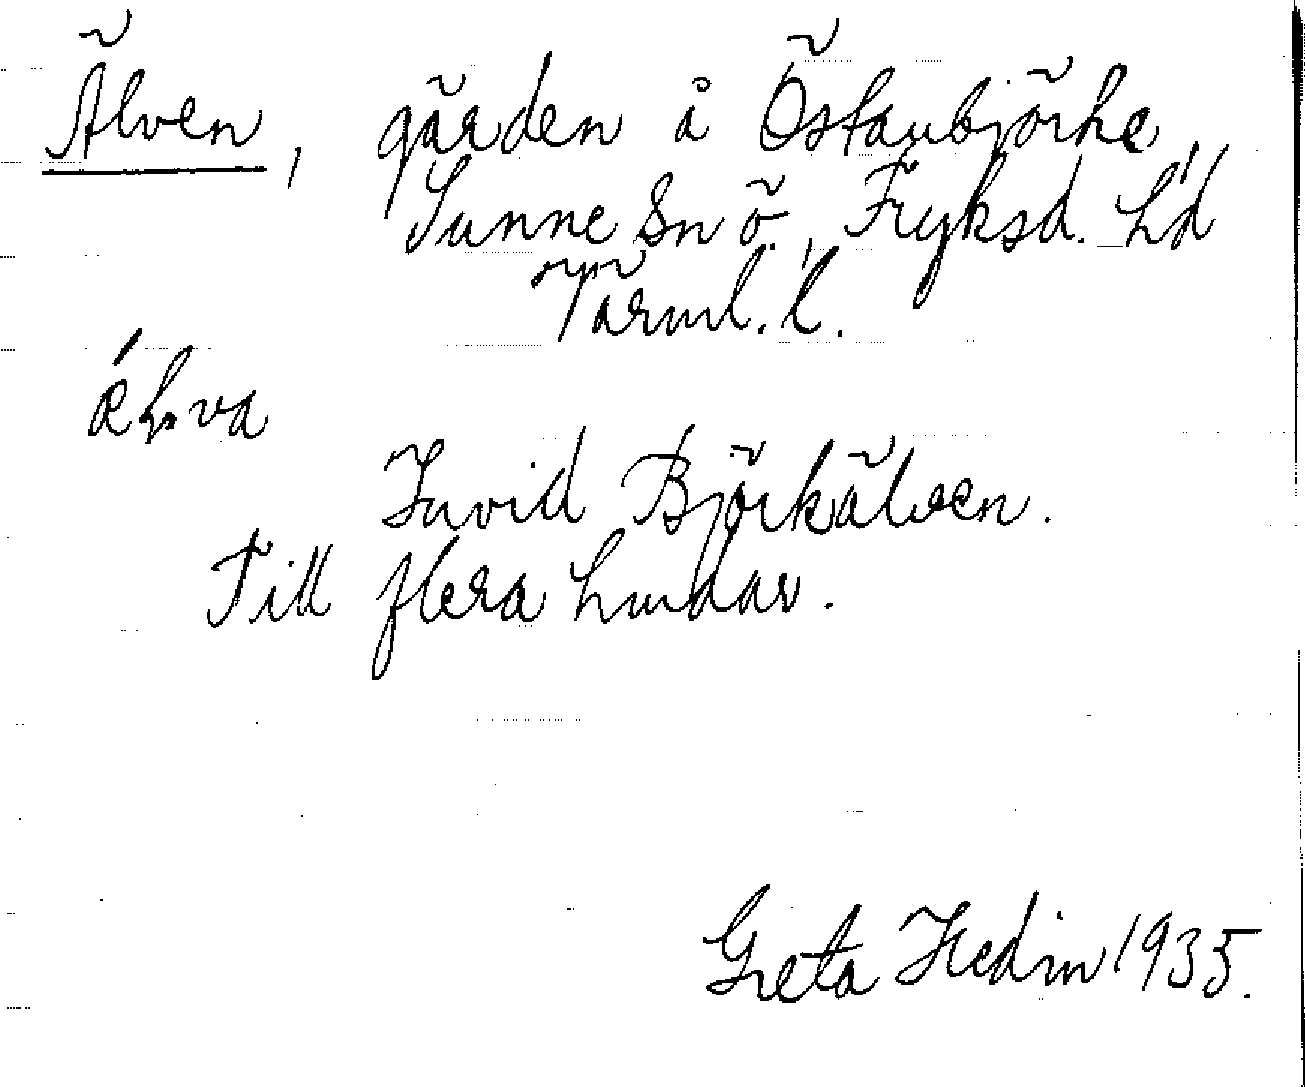 Älven, gården å Östanbjörke,
Sunne sn ö, Fryksd. hd
Värml. l.
Invid Björkälven.
Till flera hundar.
Greta Hedin 1935.